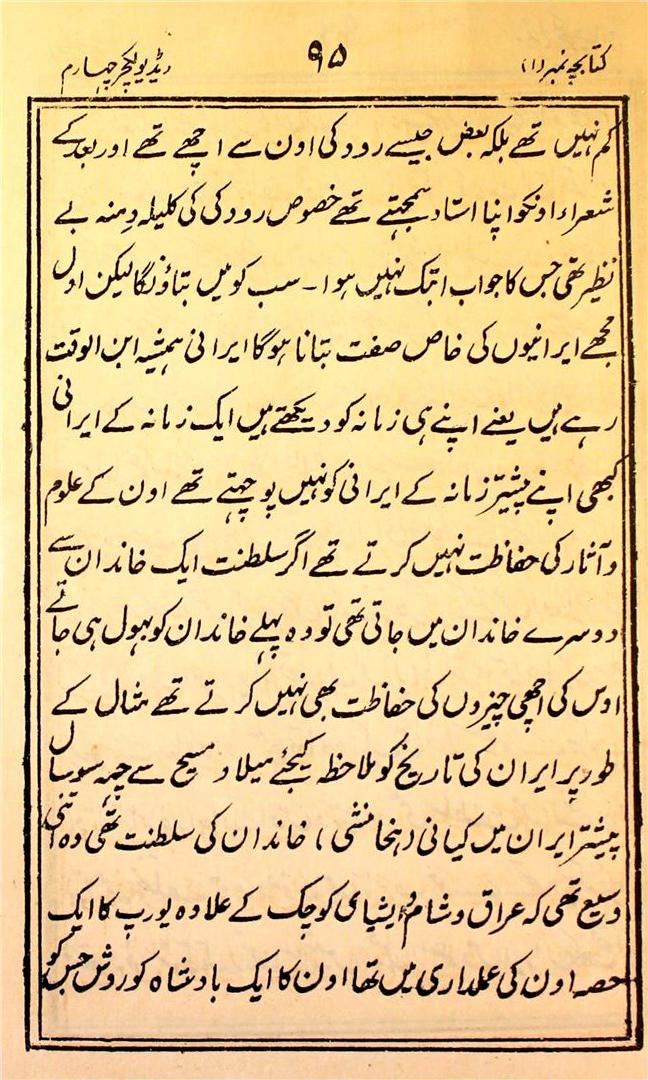 کتابچہ نمبر (۱)
۹۵
ریڈیو لکچر چہارم
کم نہیں تھے بلکہ بعض جیسے رودکی اون سے اچھے تھے اور بعد کے
شعراء اونکو اپنا استاد سمجہتے تھے خصوص رودکی کی کلیلہ دمنہ بے
نظیر تھی جس کا جواب ابتک نہیں ہوا ۔ سب کو میں بتاؤنگا لیکن اول
مجھے ایرانیوں کی خاص صفت بتانا ہوگا ایرانی ہمیشہ ابن الوقت
رہے ہیں یعنے اپنے ہی زمانہ کو دیکھتے ہیں ایک زمانہ کے ایرانی
کبھی اپنے پیشتر زمانہ کے ایرانی کو نہیں پوچہتے تھے اون کے علوم
و آثار کی حفاظت نہیں کرتے تھے اگر سلطنت ایک خاندان سے
دوسرے خاندان میں جاتی تھی تو وہ پہلے خاندان کو بہول ہی جاتے
اوس کی اچھی چیزوں کی حفاظت بھی نہیں کرتے تھے مثال کے
طور پر ایران کی تاریخ کو ملاحظہ کیجئے میلاد مسیح سے چہہ سو سال
پیشتر ایران میں کیانی (ہخامنشی) خاندان کی سلطنت تھی وہ اتنی
وسیع تھی کہ عراق و شام و ایشیای کوچک کے علاوہ یورپ کا ایک
حصہ اون کی عملداری میں تھا اون کا ایک بادشاہ کوروش جس کو